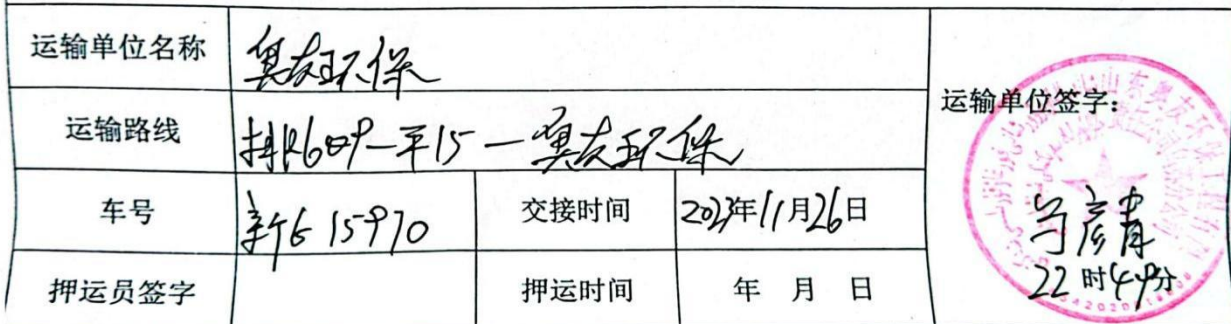 运输单位名称 奥友环保
运输单位签字:
运输路线 排K609-平15-奥友环保
车号 新G 15970 交接时间 2023年11月26日
押运员签字 押运时间 年 月 日
山东奥友环保
彦青
22时49分